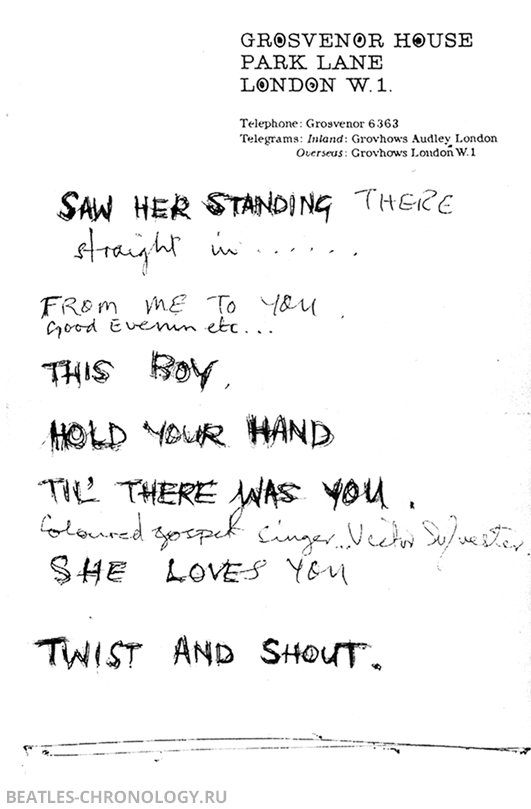 GROSVENOR HOUSE
PARK LANE
LONDON W.1.
Telephone: Grosvenor 6363
Telegrams: Inland: Grovhows Audley London
Overseas: Grovhows London W.1
SAW HER STANDING THERE
straight in ......
FROM ME TO YOU.
Good Evenin etc...
THIS BOY,
HOLD YOUR HAND
TIL' THERE WAS YOU.
Coloured gospel singer...Victor Sylvester.
SHE LOVES YOU
TWIST AND SHOUT.
BEATLES-CHRONOLOGY.RU